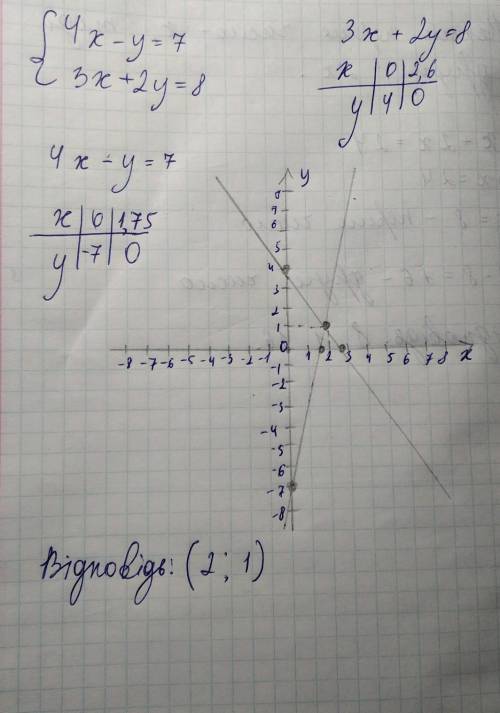 { 4x - y = 7
3x + 2y = 8
3x + 2y = 8
x | 0 | 2,6
y | 4 | 0
4x - y = 7
x | 0 | 1,75
y | -7 | 0
y
8
7
6
5
4
3
2
1
-8 -7 -6 -5 -4 -3 -2 -1 0 1 2 3 4 5 6 7 8 x
-1
-2
-3
-4
-5
-6
-7
-8
Відповідь: (2; 1)